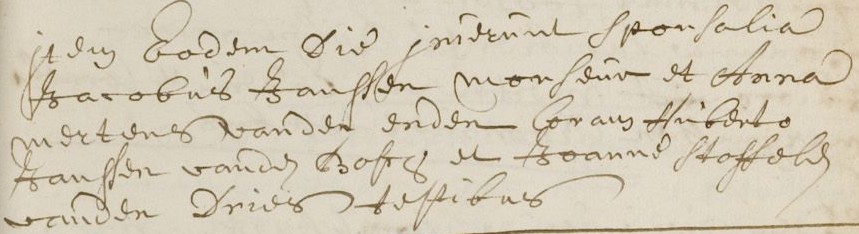 item Eodem Die inierunt sponsalia
Jacobus Janssen monseur et Anna
mertens vanden enden Coram Huberto
Janssen vanden Bosch et Joanne stoffels
vanden Dries testibus